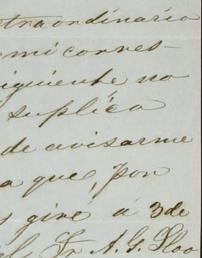 traordinario
mi corres-
iguiente no
suplica
de avisarme
a que, por
s gire á 3 de
Sr. A. G.